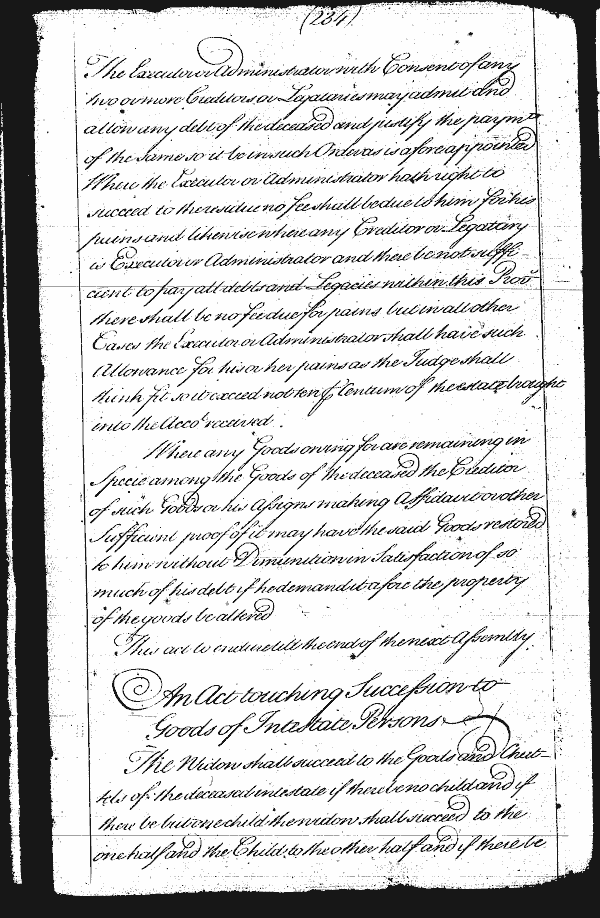 (234)
The Executor or Administrator with Consent of any
two or more Creditors or Legataries may admit and
allow any debt of the deceased and justify the paymt
of the same so it be in such Order as is afore appointed
Where the Executor or Administrator hath right to
succeed to the residue no fee shall be due to him for his
pains and likewise where any Creditor or Legatary
is Executor or Administrator and there be not suffi-
cient to pay all debts and Legacies within this Prov-
there shall be no fee due for pains but in all other
Cases the Executor or Administrator shall have such
Allowance for his or her pains as the Judge shall
think fit so it exceed not ten ⅌ Centum of the estate brought
into the Acco.t received.
Where any Goods owing for are remaining in
Specie among the Goods of the deceased the Creditor
of such Goods or his Assigns making Affidavit or other
Sufficient proof of it may have the said Goods restored
to him without Dimunition in Satisfaction of so
much of his debt if he demand it afore the property
of the goods be altered
This act to endure till the end of the next Assembly.
An Act touching Succession to
Goods of Intestate Persons
The Widow shall succeed to the Goods and Chatt-
tels of the deceased intestate if there be no child and if
there be but one child the widow shall succeed to the
one half and the Child to the other half and if there be